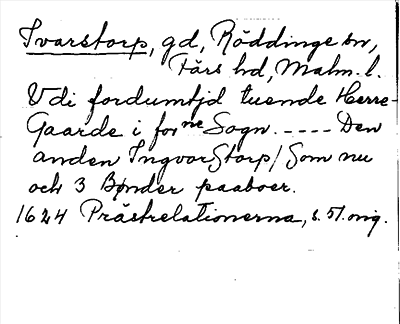 Ivarstorp, gd, Röddinge sn,
Färs hd, Malm. l.
Vdi fordumtjd tuende Herre-
Gaarde i for ne Sogn. ---- Den
anden IngvorStorp/ Som nu
och 3 Bønder paaboer.
1624 Prästrelationerna, s. 51. orig.